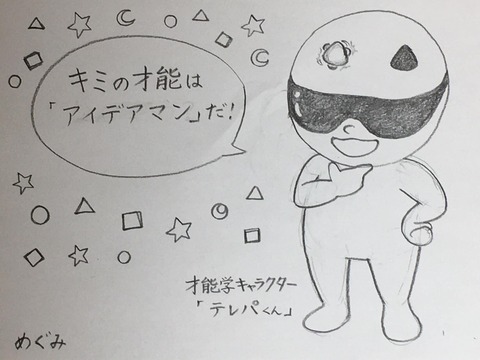 キミの才能は
「アイデアマン」だ!
才能学キャラクター
「テレパくん」
めぐみ